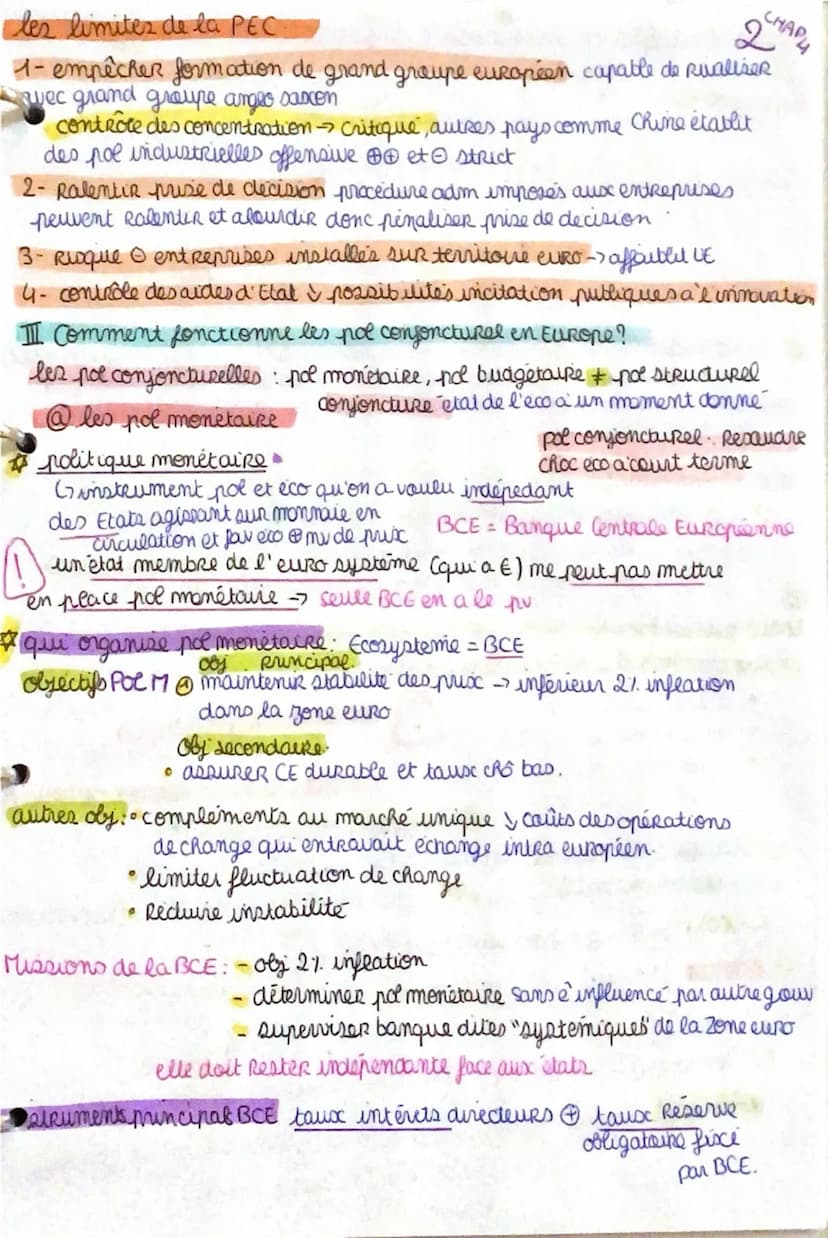 les limites de la PEC.
2 CHAP 4
1- empêcher formation de grand groupe européen capable de rivaliser
avec grand groupe anglo saxon
contrôle des concentration → critiqué, autres pays comme Chine établit
des pol industrielles offensive ⊕⊕ et ⊖ strict
2- Ralentir prise de decision procédure adm imposés aux entreprises
peuvent ralentir et alourdir donc pénaliser prise de decision
3- Risque ⊖ entreprises installés sur territoire euro → affaiblit UE
4- contrôle des aides d'Etat ↘ possibilités incitation publiques à l'innovation
III Comment fonctionne les pol conjoncturel en Europe?
les pol conjoncturelles : pol monétaire, pol budgétaire ≠ pol structurel
conjoncture état de l'eco à un moment donné
@ les pol monétaire
pol conjoncturel. Resoudre
choc eco a court terme
☆ politique monétaire
↳ instrument pol et éco qu'on a voulu indépedant
des Etats agissant sur monnaie en
circulation et fav eco ⊕ niv de prix
BCE = Banque Centrale Européenne
! un état membre de l'euro système (qui a €) ne peut pas mettre
en place pol monétaire → seule BCE en a le pv
☆ qui organise pol monétaire: Ecosysteme = BCE
obj principal.
objectifs POL M @ maintenir stabilité des prix → inférieur 2% inflation
dans la zone euro
Obj secondaire.
• assurer CE durable et taux chô bas.
autres obj: • compléments au marché unique ↘ coûts des opérations
de change qui entravait échange intra européen
• limiter fluctuation de change
• Réduire instabilité
Missions de la BCE : - obj 2% inflation
- déterminer pol monétaire sans ê influencé par autre gouv
- superviser banque dites "systémiques" de la zone euro
elle doit rester indépendante face aux états
struments principal BCE taux intérêts directeurs ⊕ taux Réserve
obligatoire fixé
par BCE.